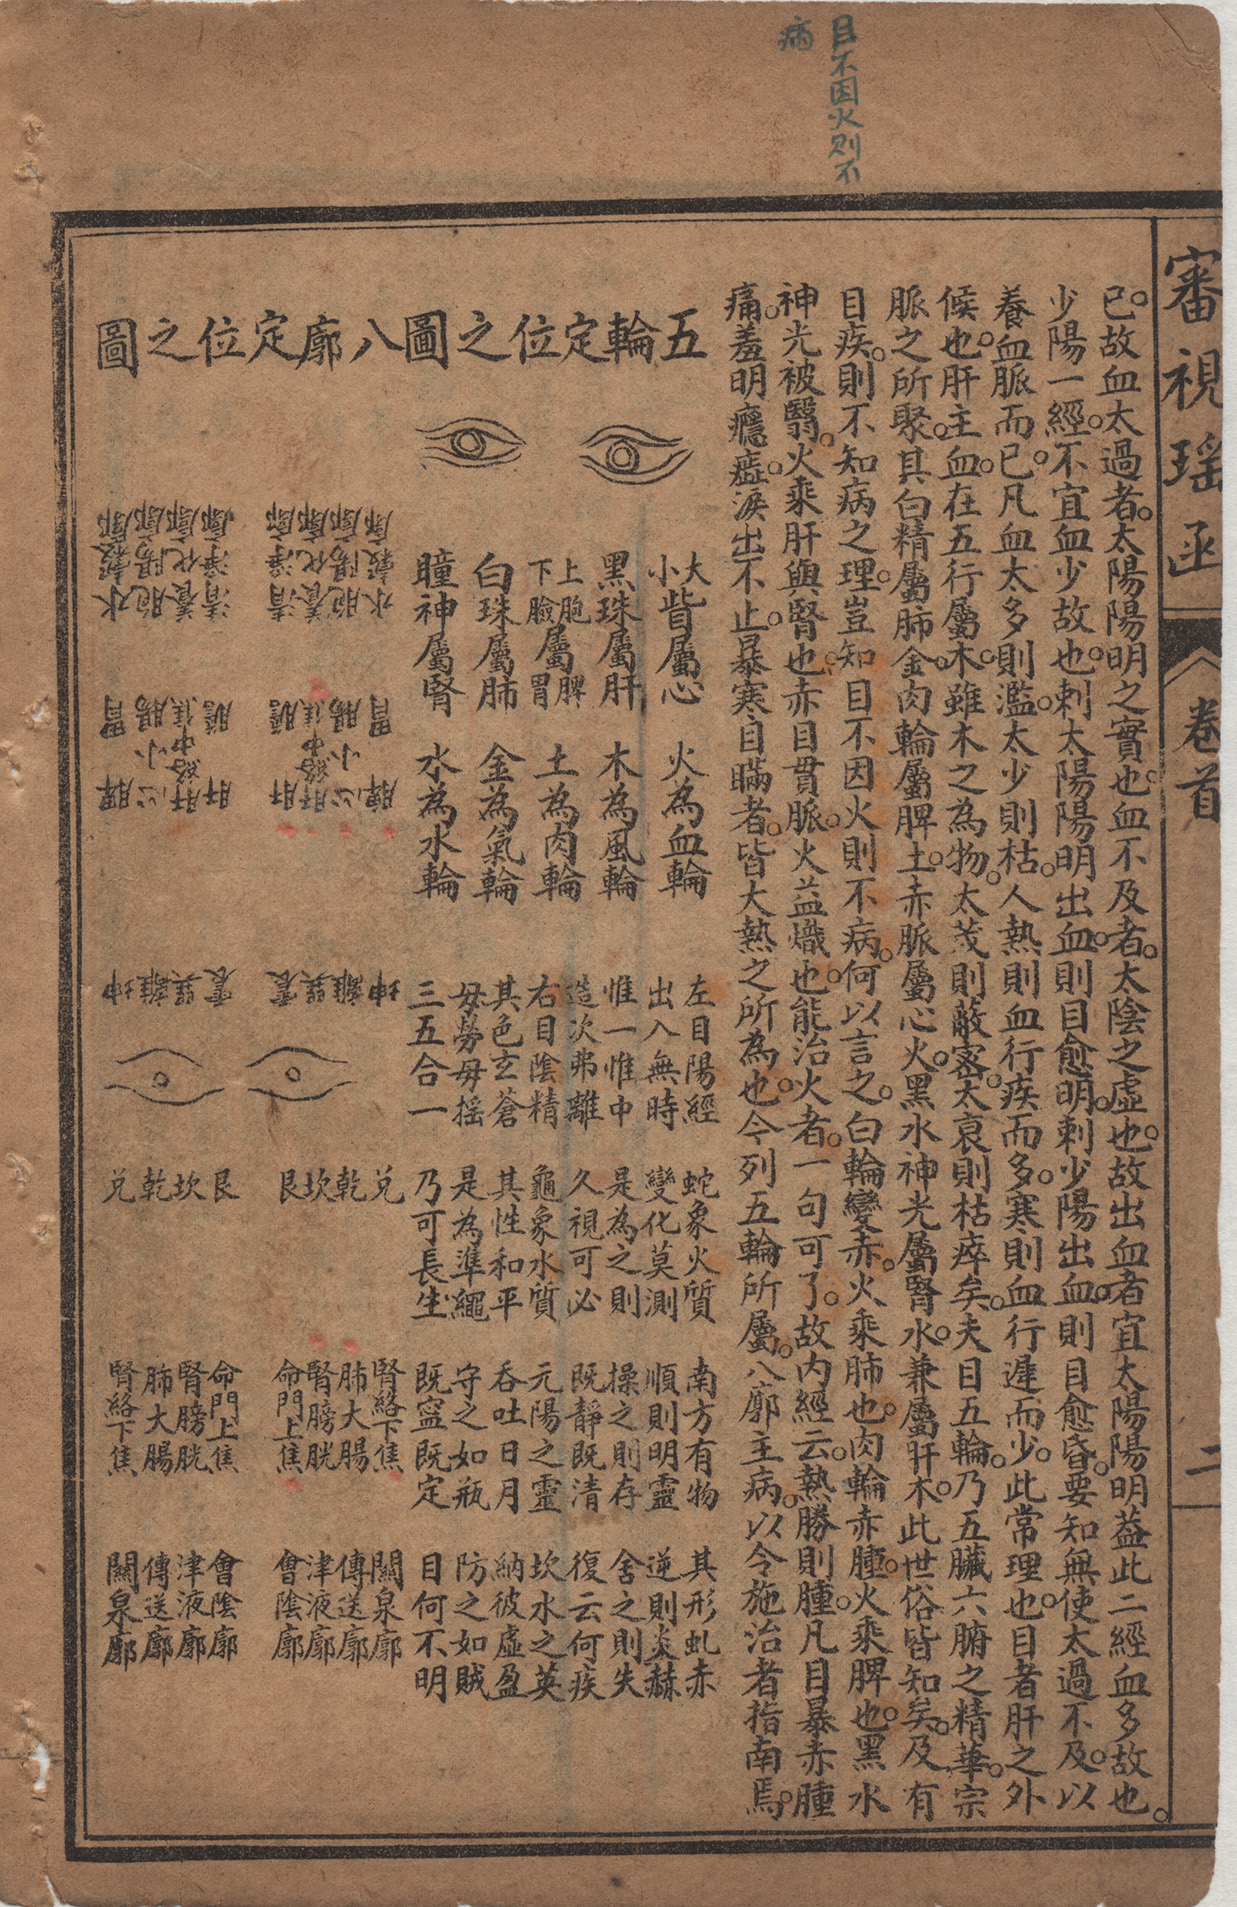 目不因火則不
病
審視瑤函
卷首
二
已故血太過者太陽陽明之實也血不及者太陰之虛也故出血者宜太陽陽明葢此二經血多故也
少陽一經不宜血少故也刺太陽陽明出血則目愈明刺少陽出血則目愈昏要知無使太過不及以
養血脈而已凡血太多則濫太少則枯人熱則血行疾而多寒則血行遲而少此常理也目者肝之外
候也肝主血在五行屬木雖木之為物太茂則蔽密太衰則枯瘁矣夫目五輪乃五臟六腑之精華宗
脈之所聚其白精屬肺金肉輪屬脾土赤脈屬心火黑水神光屬腎水兼屬肝木此世俗皆知矣及有
目疾則不知病之理豈知目不因火則不病何以言之白輪變赤火乘肺也肉輪赤腫火乘脾也黑水
神光被翳火乘肝與腎也赤目貫脈火益熾也能治火者一句可了故內經云熱勝則腫凡目暴赤腫
痛羞明癮澁淚出不止暴寒目瞞者皆大熱之所為也今列五輪所屬八廓主病以令施治者指南焉
五輪定位之圖
大小眥屬心 火為血輪
黑珠屬肝 木為風輪
上胞下臉屬脾胃 土為肉輪
白珠屬肺 金為氣輪
瞳神屬腎 水為水輪
左目陽經 蛇象火質 南方有物 其形虬赤
出入無時 變化莫測 順則明靈 逆則炎赫
惟一惟中 是為之則 操之則存 舍之則失
造次弗離 久視可必 既靜既清 復云何疾
右目陰精 龜象水質 元陽之靈 坎水之英
其色玄蒼 其性和平 吞吐日月 納彼虛盈
毋勞毋搖 是為準繩 守之如瓶 防之如賊
三五合一 乃可長生 既寍既定 目何不明
八廓定位之圖
坤 脾胃 水穀廓
離 心小腸 胞陽廓
巽 肝絡中焦 養化廓
震 肝膽 清淨廓
兌 腎絡下焦 關泉廓
乾 肺大腸 傳送廓
坎 腎膀胱 津液廓
艮 命門上焦 會陰廓
震 肝膽 清淨廓
巽 肝絡中焦 養化廓
離 心小腸 胞陽廓
坤 脾胃 水穀廓
艮 命門上焦 會陰廓
坎 腎膀胱 津液廓
乾 肺大腸 傳送廓
兌 腎絡下焦 關泉廓